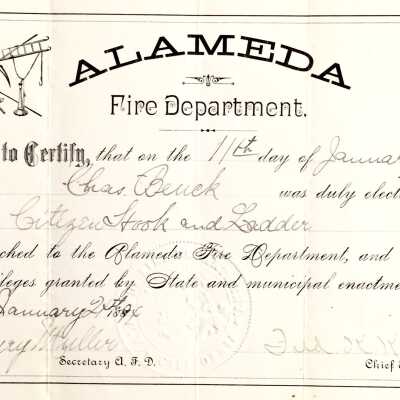 ALAMEDA
Fire Department.
to Certify, that on the 11th day of January
Chas. Beuck was duly elect
Citizen Hook and Ladder
ched to the Alameda Fire Department, and
ileges granted by State and municipal enactme
January 2
Secretary A. F. D.
Chief